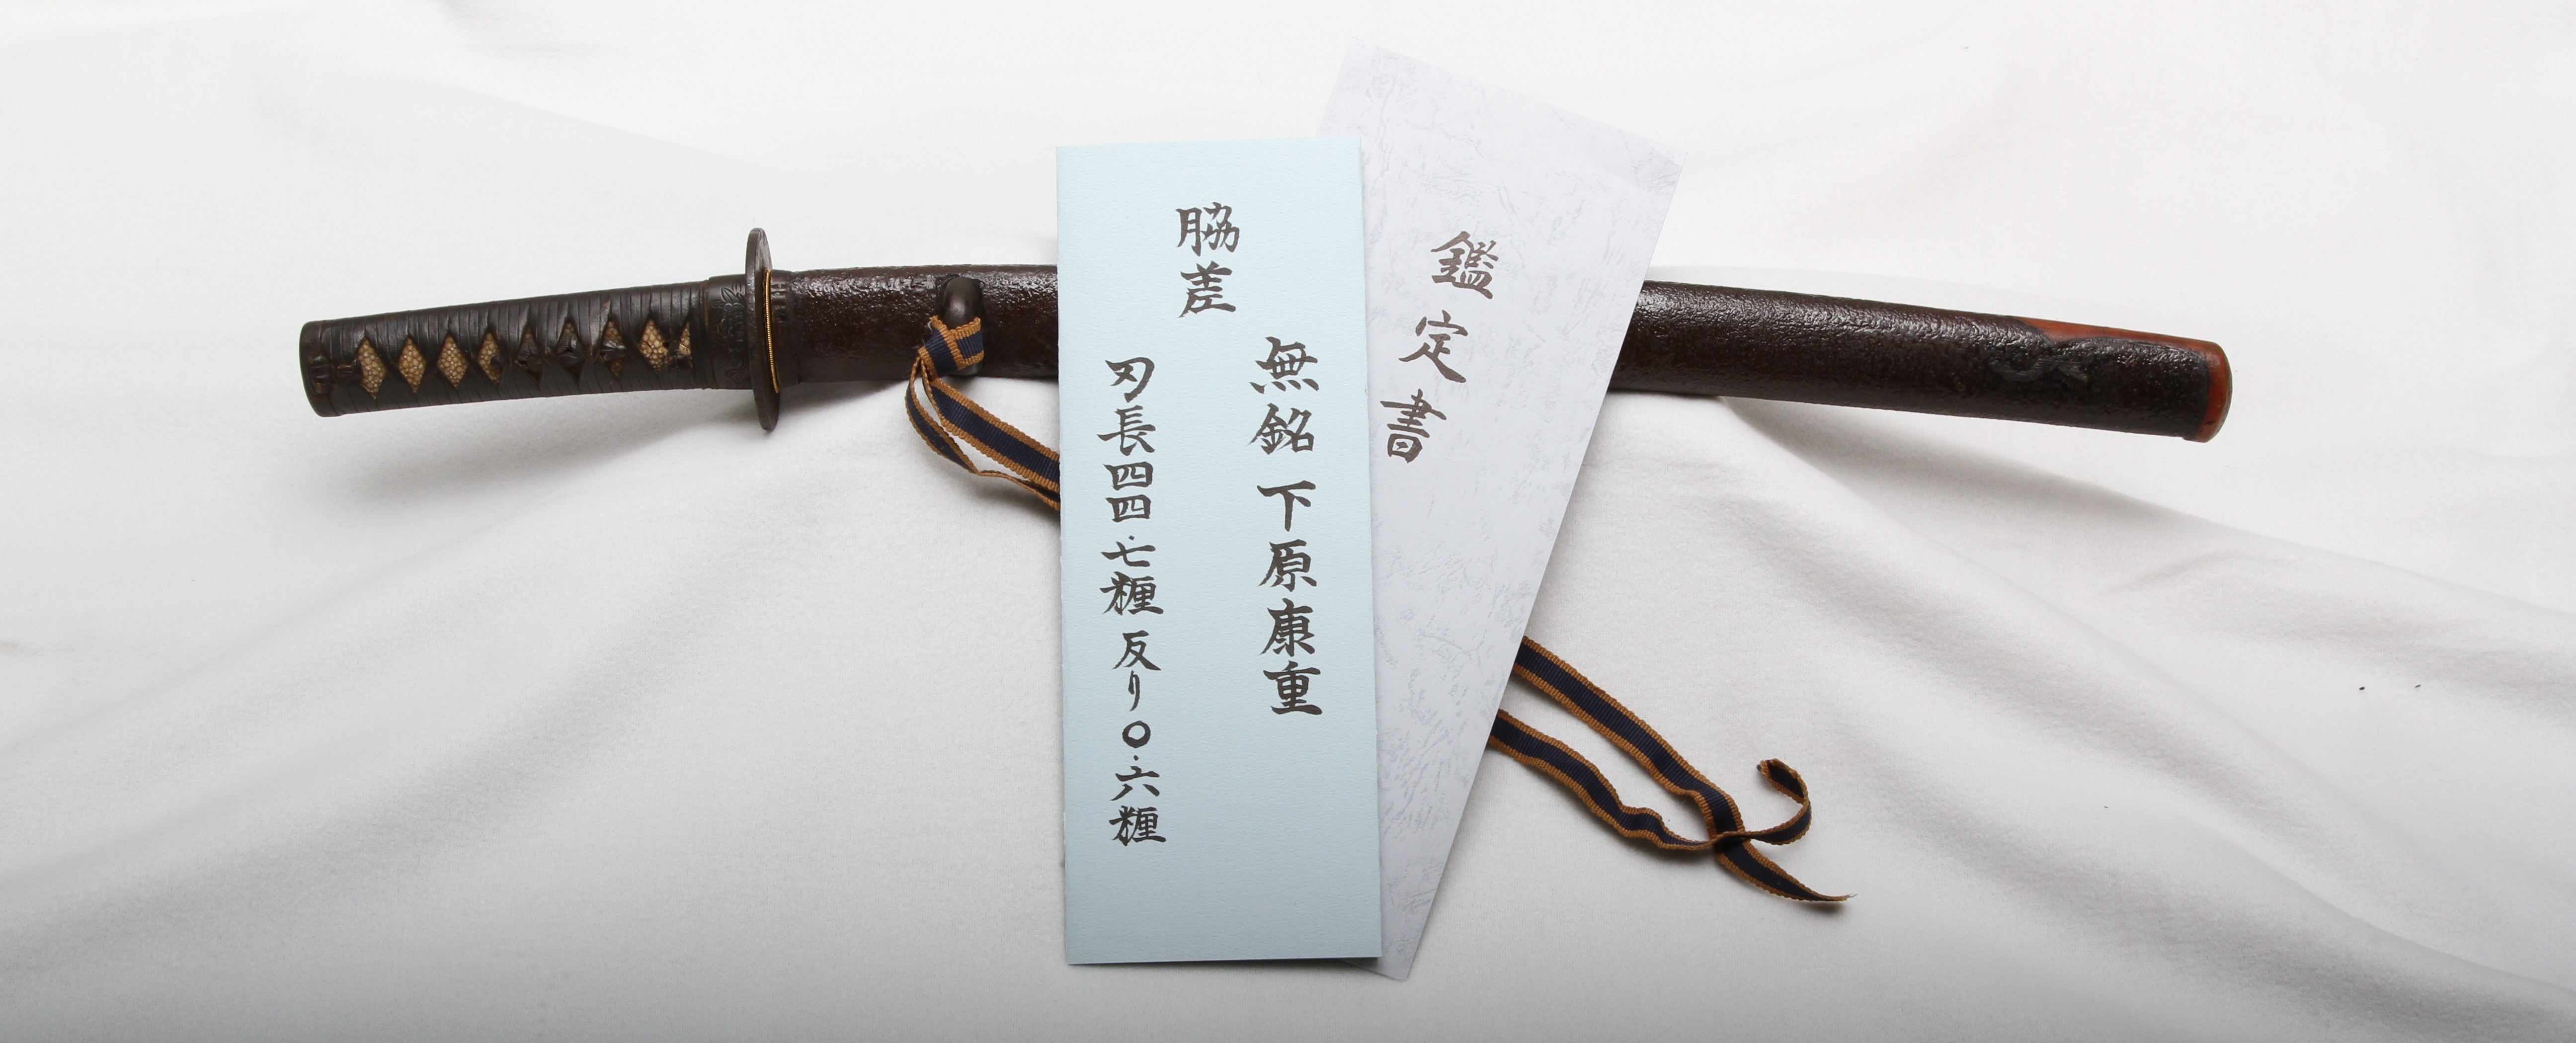 鑑定書
脇差
無銘 下原康重
刃長四四.七糎 反り〇.六糎